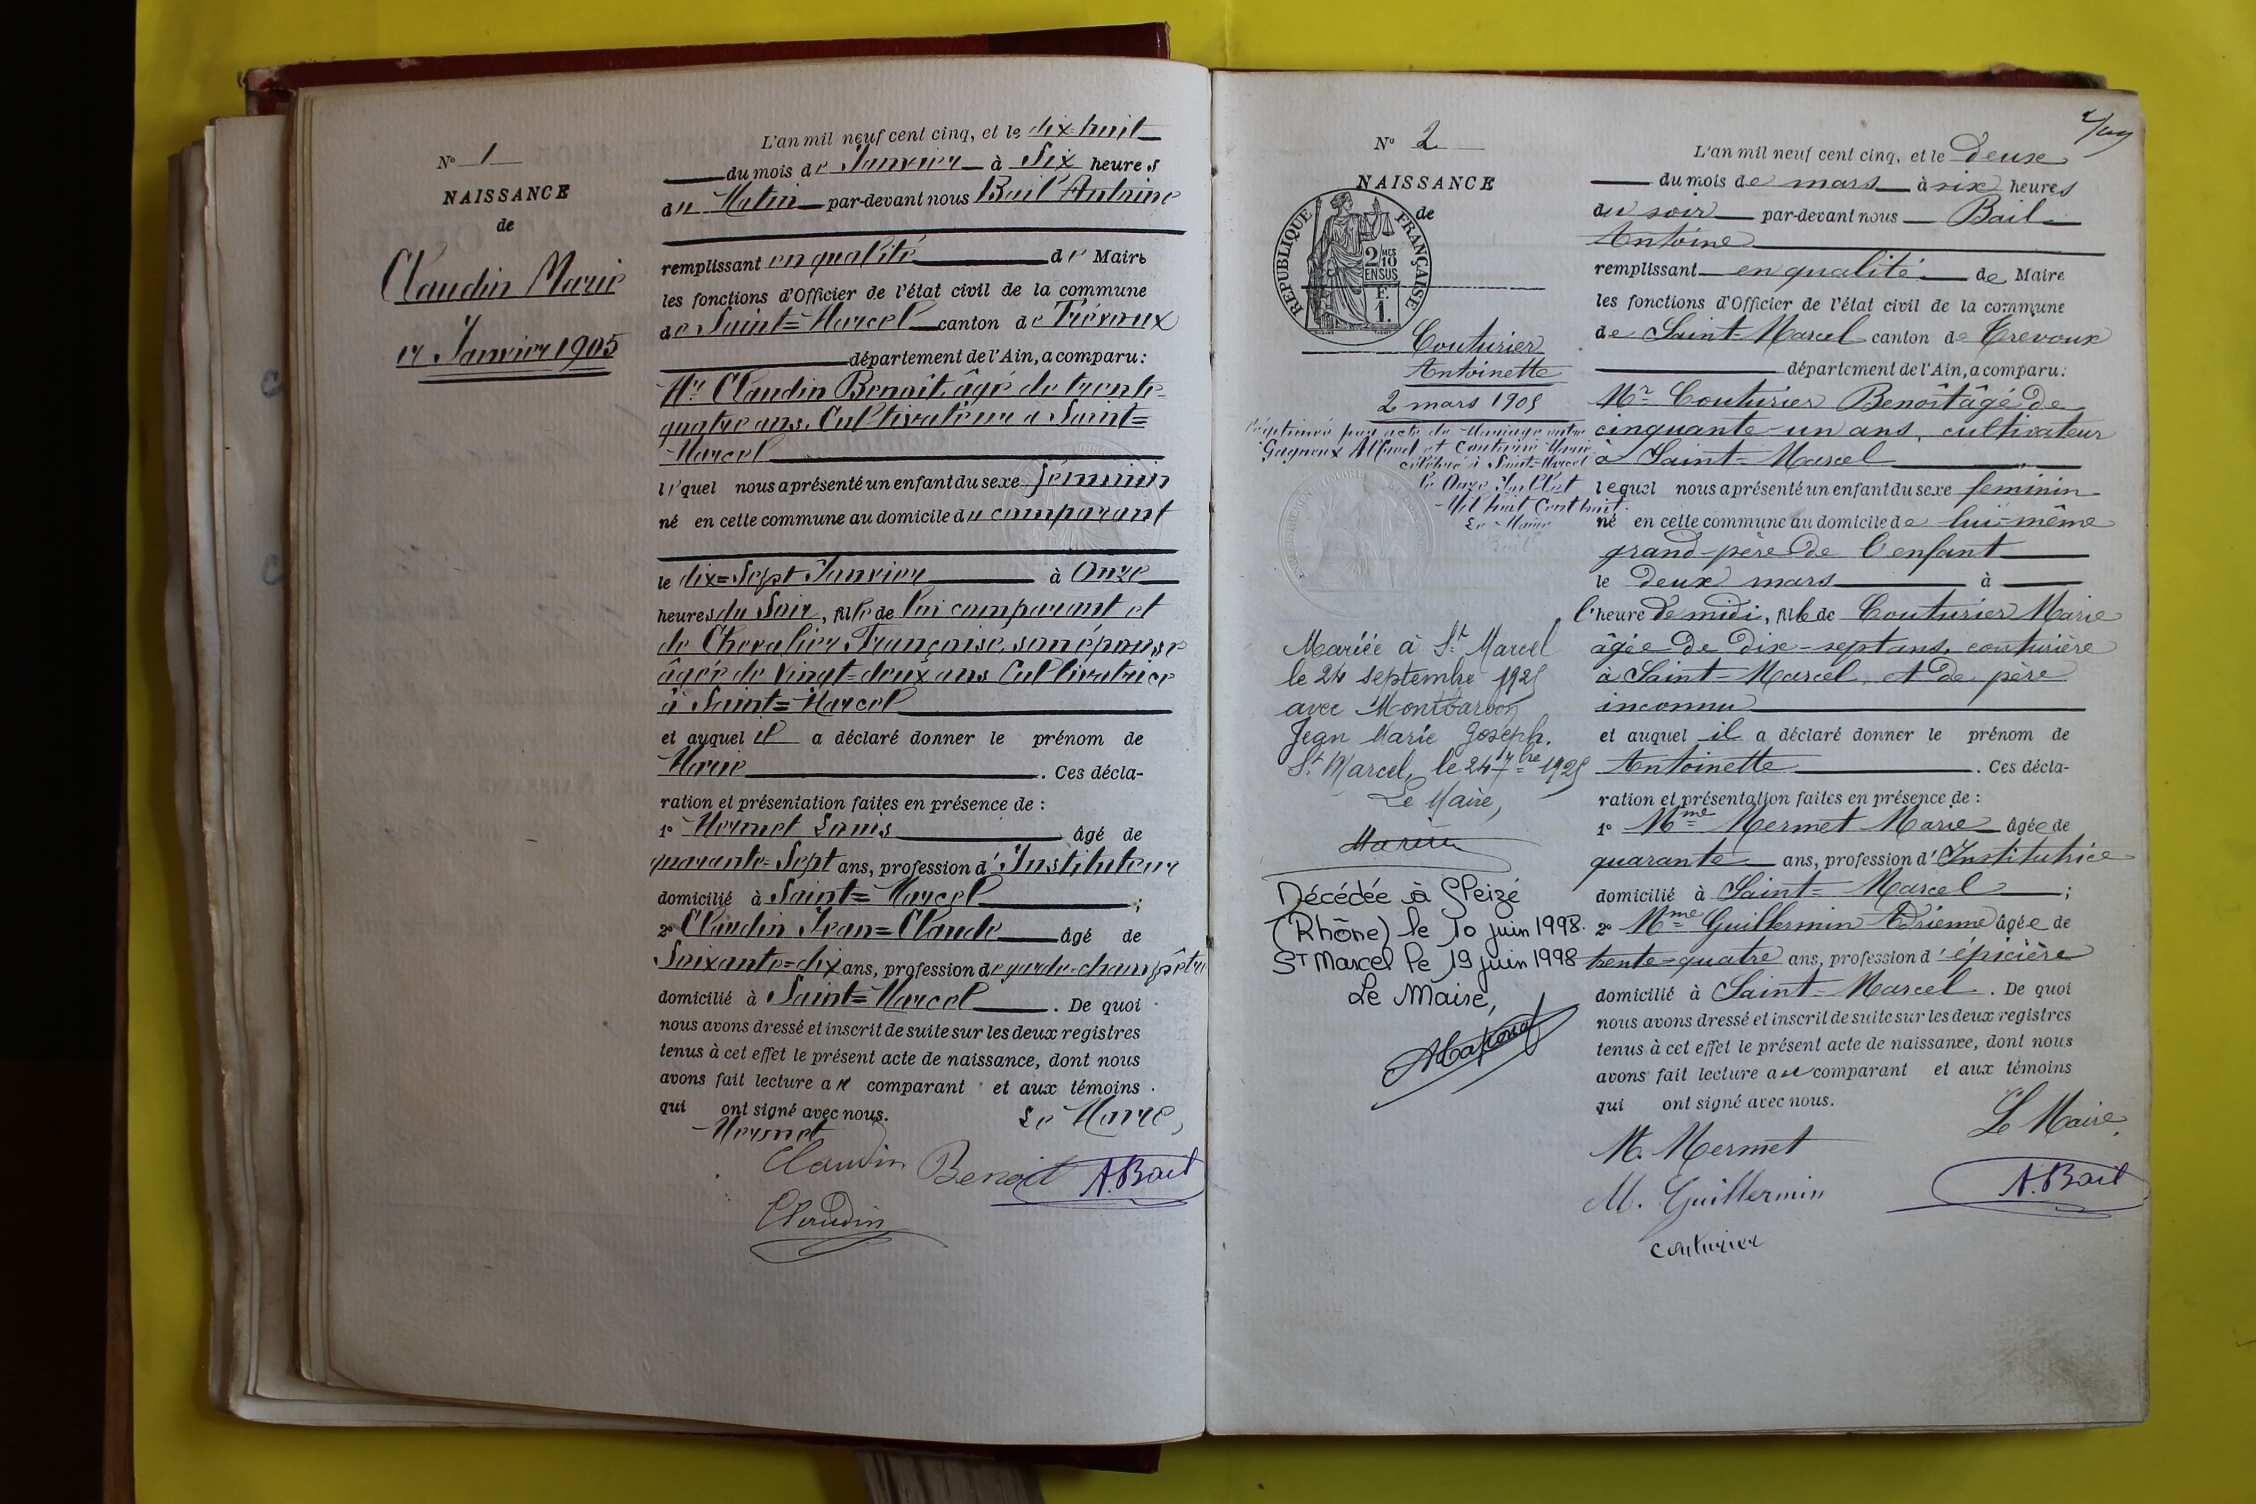 N° 1
NAISSANCE
de
Claudin Marie
17 Janvier 1905
L'an mil neuf cent cinq, et le dix-huit
du mois de Janvier à Six heures
du Matin par-devant nous Bail Antoine
remplissant en qualité de Maire
les fonctions d'Officier de l'état civil de la commune
de Saint=Marcel canton de Trévoux
département de l'Ain, a comparu:
Mr Claudin Benoit, âgé de trente=
quatre ans, Cultivateur à Saint=
Marcel
lequel nous a présenté un enfant du sexe féminin
né en cette commune au domicile du comparant
le dix=Sept Janvier à Onze
heures du Soir, fille de lui comparant et
de Chevalier Françoise, son épouse
âgée de Vingt=deux ans Cultivatrice
à Saint=Marcel
et auquel il a déclaré donner le prénom de
Marie. Ces décla-
ration et présentation faites en présence de :
1° Mermet Louis âgé de
quarante=Sept ans, profession d'Instituteur
domicilié à Saint=Marcel ;
2° Claudin Jean=Claude âgé de
Soixante=dix ans, profession de garde-champêtre
domicilié à Saint=Marcel. De quoi
nous avons dressé et inscrit de suite sur les deux registres
tenus à cet effet le présent acte de naissance, dont nous
avons fait lecture au comparant et aux témoins.
qui ont signé avec nous. Le Maire,
Mermet
Claudin Benoit A. Bail
Claudin
N° 2
NAISSANCE
de
RÉPUBLIQUE FRANÇAISE
2/10 MES
EN SUS
F.
1.
Couturier
Antoinette
2 mars 1905
Légitimée par acte de Mariage entre
Gagneux Alfred et Couturier Marie
célébré à Saint=Marcel
le Onze Juillet
Mil huit Cent huit.
Le Maire
Bail
Mariée à St Marcel
le 24 septembre 1925
avec Montbarbon
Jean Marie Joseph.
St Marcel, le 24 7bre 1925
Le Maire,
Décédée à
(Rhône) le 10 juin 1998.
ST Marcel le 19 juin 1998
Le Maire,
L'an mil neuf cent cinq, et le deux
du mois de mars à six heures
du soir par-devant nous Bail
Antoine
remplissant en qualité de Maire
les fonctions d'Officier de l'état civil de la commune
de Saint-Marcel canton de Trevoux
département de l'Ain, a comparu:
Mr Couturier Benoît âgé de
cinquante-un ans, cultivateur
à Saint-Marcel
lequel nous a présenté un enfant du sexe féminin
né en cette commune au domicile de lui-même
grand-père de l'enfant
le deux mars à
l'heure de midi, fille de Couturier Marie
âgée de dix-sept ans, couturière
à Saint-Marcel, et de père
inconnu
et auquel il a déclaré donner le prénom de
Antoinette. Ces décla-
ration et présentation faites en présence de :
1° Mme Mermet Marie âgée de
quarante ans, profession d'Institutrice
domicilié à Saint-Marcel ;
2° Mme Guillermin Adrienne âgée de
trente-quatre ans, profession d'épicière
domicilié à Saint-Marcel. De quoi
nous avons dressé et inscrit de suite sur les deux registres
tenus à cet effet le présent acte de naissance, dont nous
avons fait lecture au comparant et aux témoins
qui ont signé avec nous.
Le Maire.
M. Mermet
M. Guillermin A. Bail
couturier